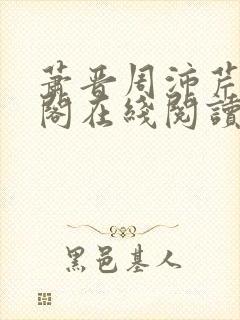 蕭晉周沛芹
閣在綫閱讀
黑邑基人